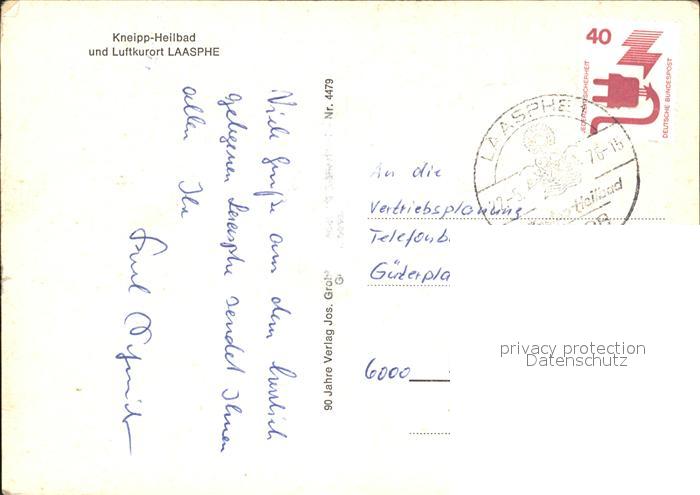 Kneipp-Heilbad
und Luftkurort LAASPHE
Viele Grüße aus dem herrlich
gelegenen Laasphe sendet Ihnen
allen Ihr
90 Jahre Verlag Jos. Gro
Nr. 4479
40
JEDERZEIT SICHERHEIT
DEUTSCHE BUNDESPOST
LAASPHE
76-15
Heilbad
An die
Vertriebsplanung
Telefonb
Güterpla
6000
privacy protection
Datenschutz